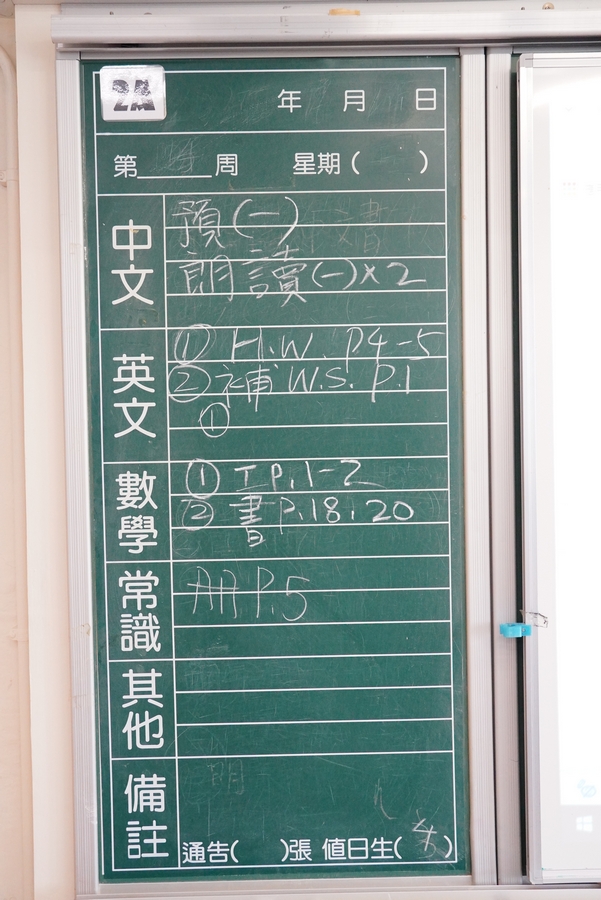 2A
年 月 日
第______周 星期( )
中文
預(一)
朗讀(一)x2
英文
① H.W. P.4-5
② 補 W.S. P.1
①
數學
① T P.1-2
② 書 P.18,20
常識
P.5
其他
備註
通告( )張 值日生( )